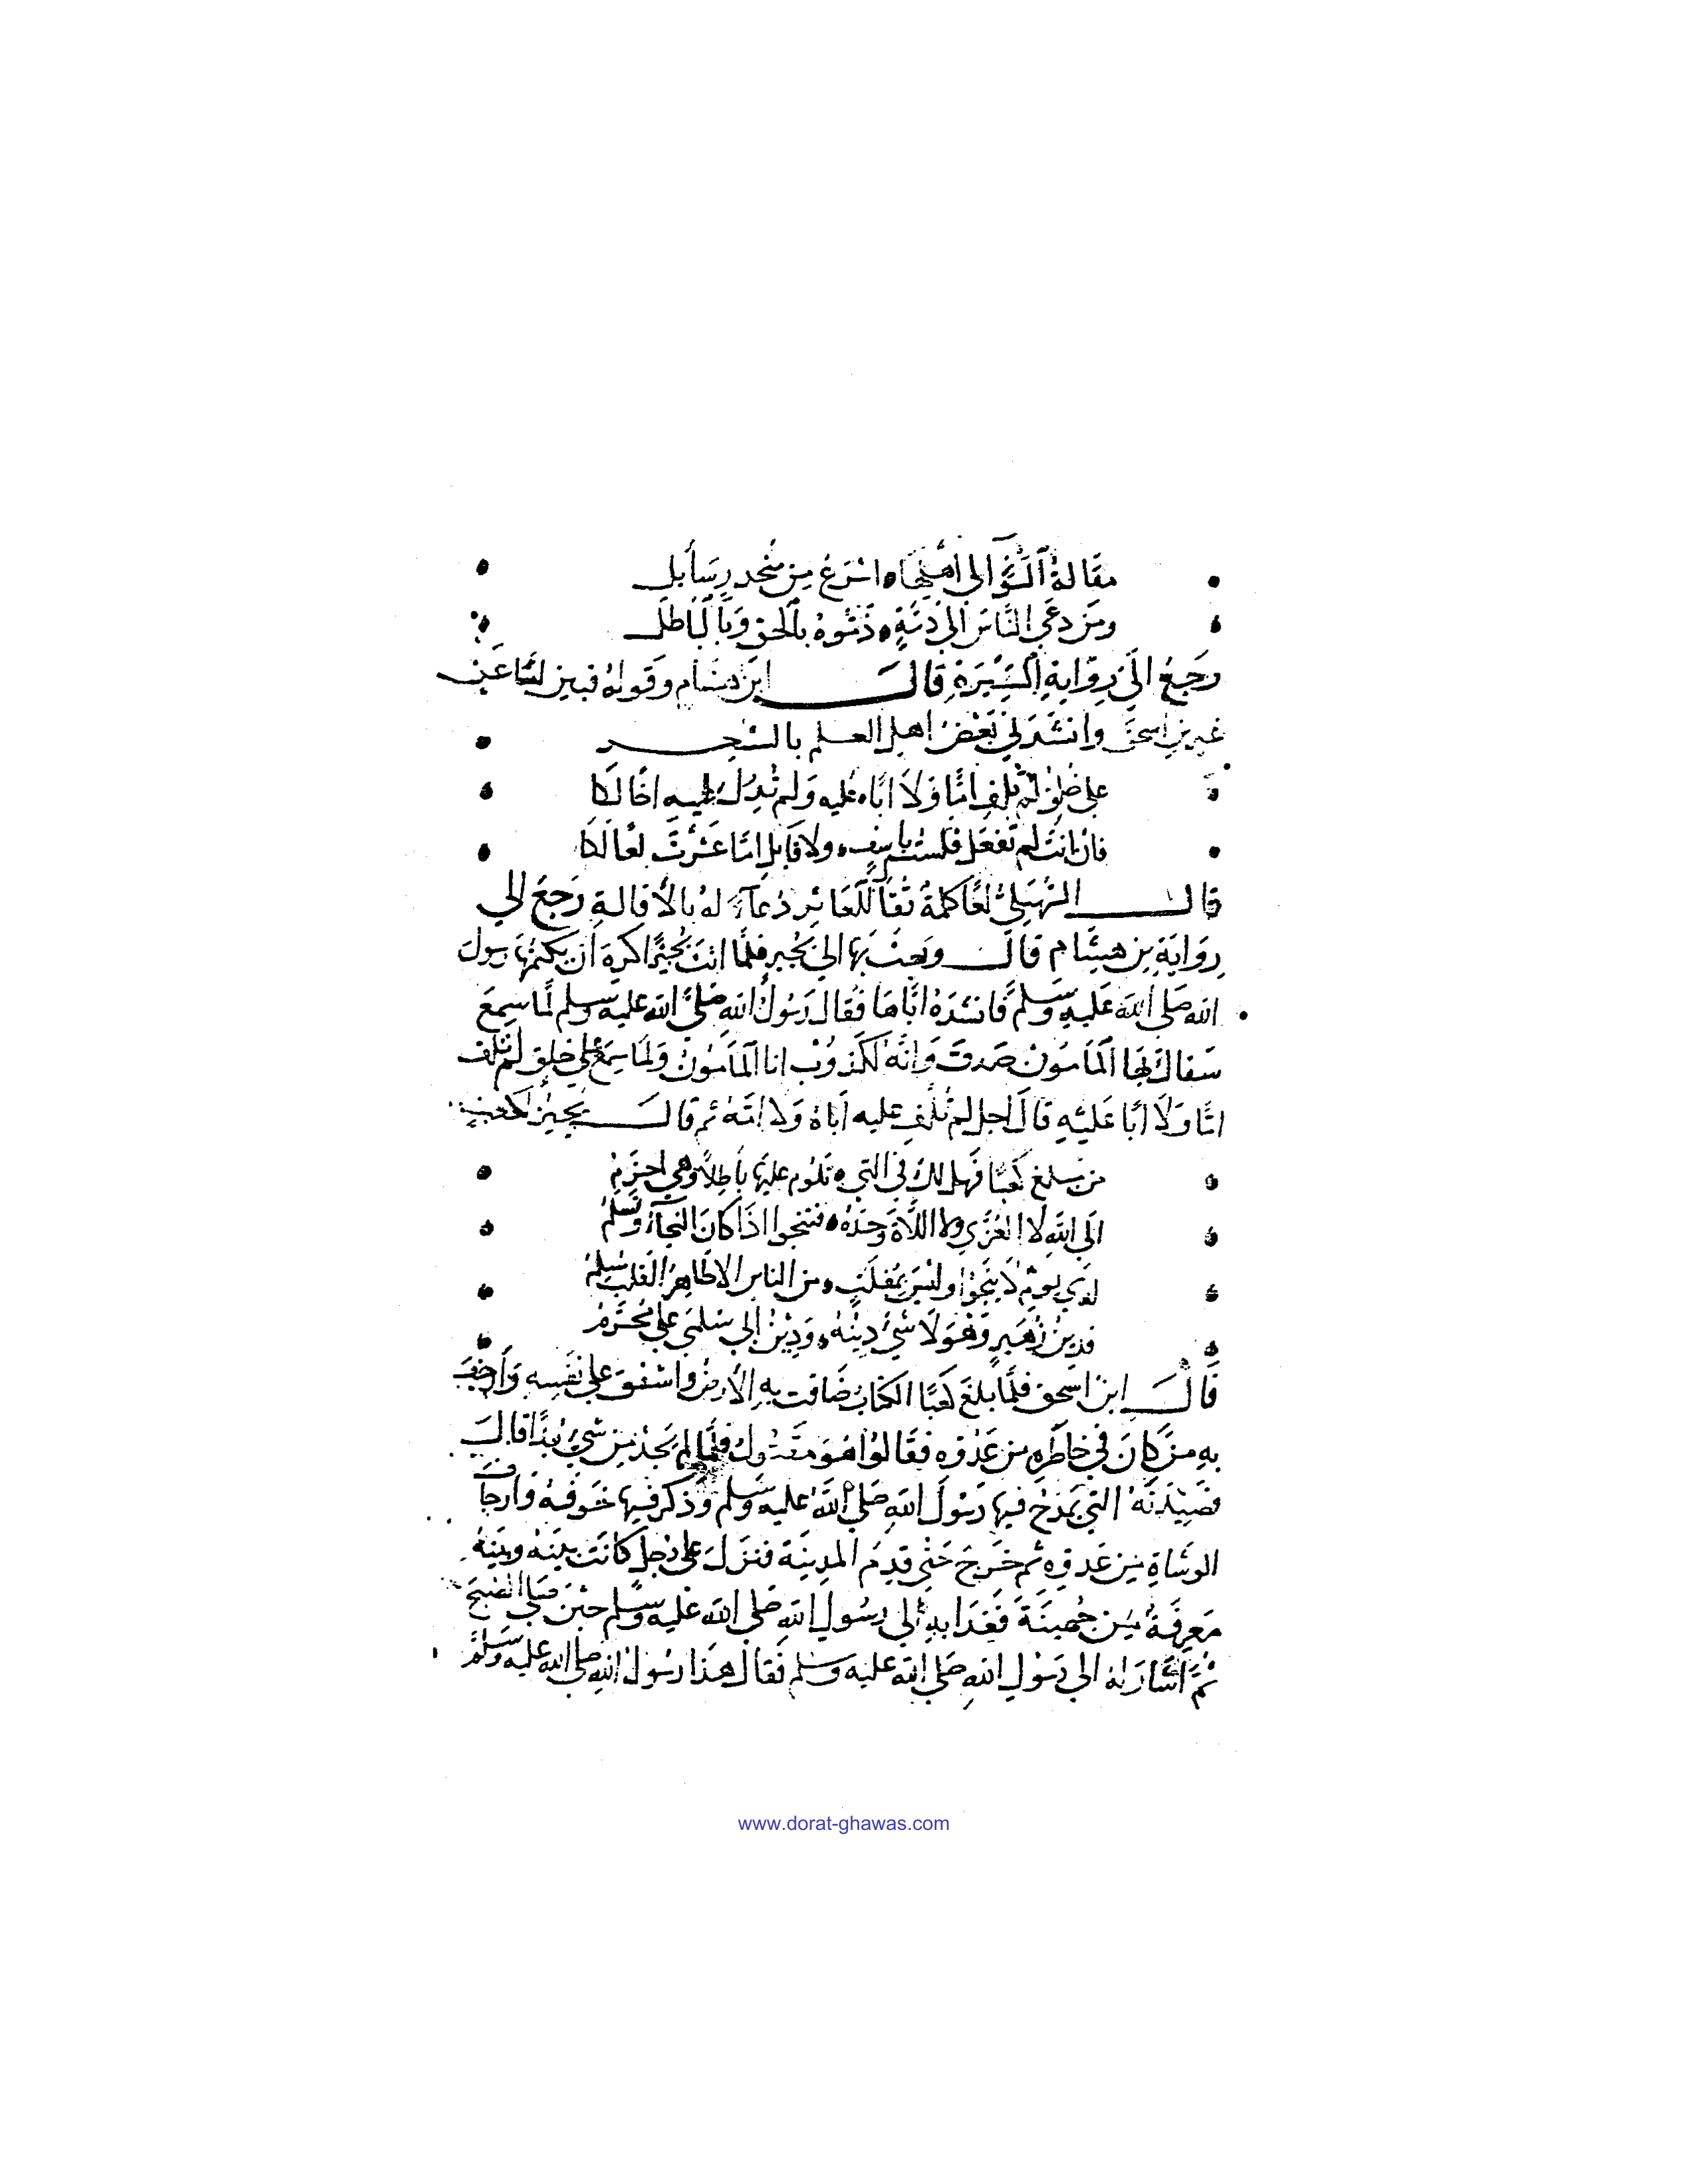 مَقَالةُ السُّوِّ الى أهلِهَا • اسْرَعُ مِن مُنْحَدِر سَايل
ومَن دعَى النَّاسَ الى ذَمِّهِ • ذَمُّوهُ بالحق وَبالبَاطل
رَجَعُ الى رِوَايةِ السِّيْرَةِ قالَ ابن هشام وقَولهُ فبين لنا عَن
غير بن اسحق وانشَدَني بَعْضُ اهل العلم بالشعر
على خلق لم تلفِ امًّا وَلا ابًا • عليه ولم تُدرك عليه اخًا لكا
فان انت لم تفعَل فلستُ بآسفٍ • ولا قايل امّا عَثرتَ لعًا لكا
قال السُّهَيليُّ لعًا كلمةُ تقال للعَاثِر دُعآء لهُ بالأقالةِ رَجعَ الي
رِوَايَةِ بن هشام قالَ وبعثَ بها الى بُجير فلمَّا اتت بُجيرًا كرهَ أن يكتمُها رسول
الله صَلى الله عَليهِ وَسَلم فَانشَدَهُ ايَّاهَا فقال رَسُولُ الله صَلى الله عليه وسلم لمّا سمِعَ
سَقاك بها المأمُونُ صَدقَ وَانّهُ لكذوبٌ انا المأمُونُ وَلما سَمِعَ على خلق لم تلف
امًّا وَلا ابًا عَليْهِ قالَ اجل لم يُلفِ عليه ابَاهُ وَلا امّهُ ثم قالَ بجيرٌ لكعب
من مبلغ كعبًا فهل لك في التي • تلوم عليها باطلاً وهي احزم
الى اللهِ لا العُزّي ولا اللاة وَحدَهُ • فتنجوا اذا كانَ النجآءُ وتسلم
لدي يومِ لا ينجوا وليسَ بمُفلَتٍ • من الناس الا طَاهِرُ القلب مُسْلِمُ
فدينُ زُهَيرٍ وَهُوَ لا شيءَ دِينُهُ • وَدِينُ ابي سُلمَى على مُحَرَّمُ
قالَ ابن اسحق فلمَّا بلغَ كعبًا الكتابُ ضَاقت بهِ الأرضُ واشفقَ على نفسِه وَأرجَفَ
به مَن كانَ في حَاضِرهِ من عَدُوِّه فقالُوا هُوَ مقتُولٌ فلمّا لم يَجدْ من شيءٍ بُدًّا قالَ
قصِيدَتَهُ التي يَمدَحُ فيها رَسُولَ اللهِ صَلى الله عليه وسلم وَذكرَ فيها خَوفهُ وَارجَافَ
الوشاةِ مِن عَدوِّهِ ثم خَرجَ حَتى قدِمَ المدينة فنزَلَ على رَجل كانت بينَهُ وبينَهُ
مَعرِفَةٌ مِن جُهينَة فَغدَا بهِ الى رسُولِ الله صَلى الله عَليه وسلم حين صلى الصُّبحَ
ثُمَّ اشَارَ لهُ الى رَسُولِ الله صَلى الله عليه وسلم فَقالَ هذا رسُولُ الله صلى الله عليه وسلم
www.dorat-ghawas.com